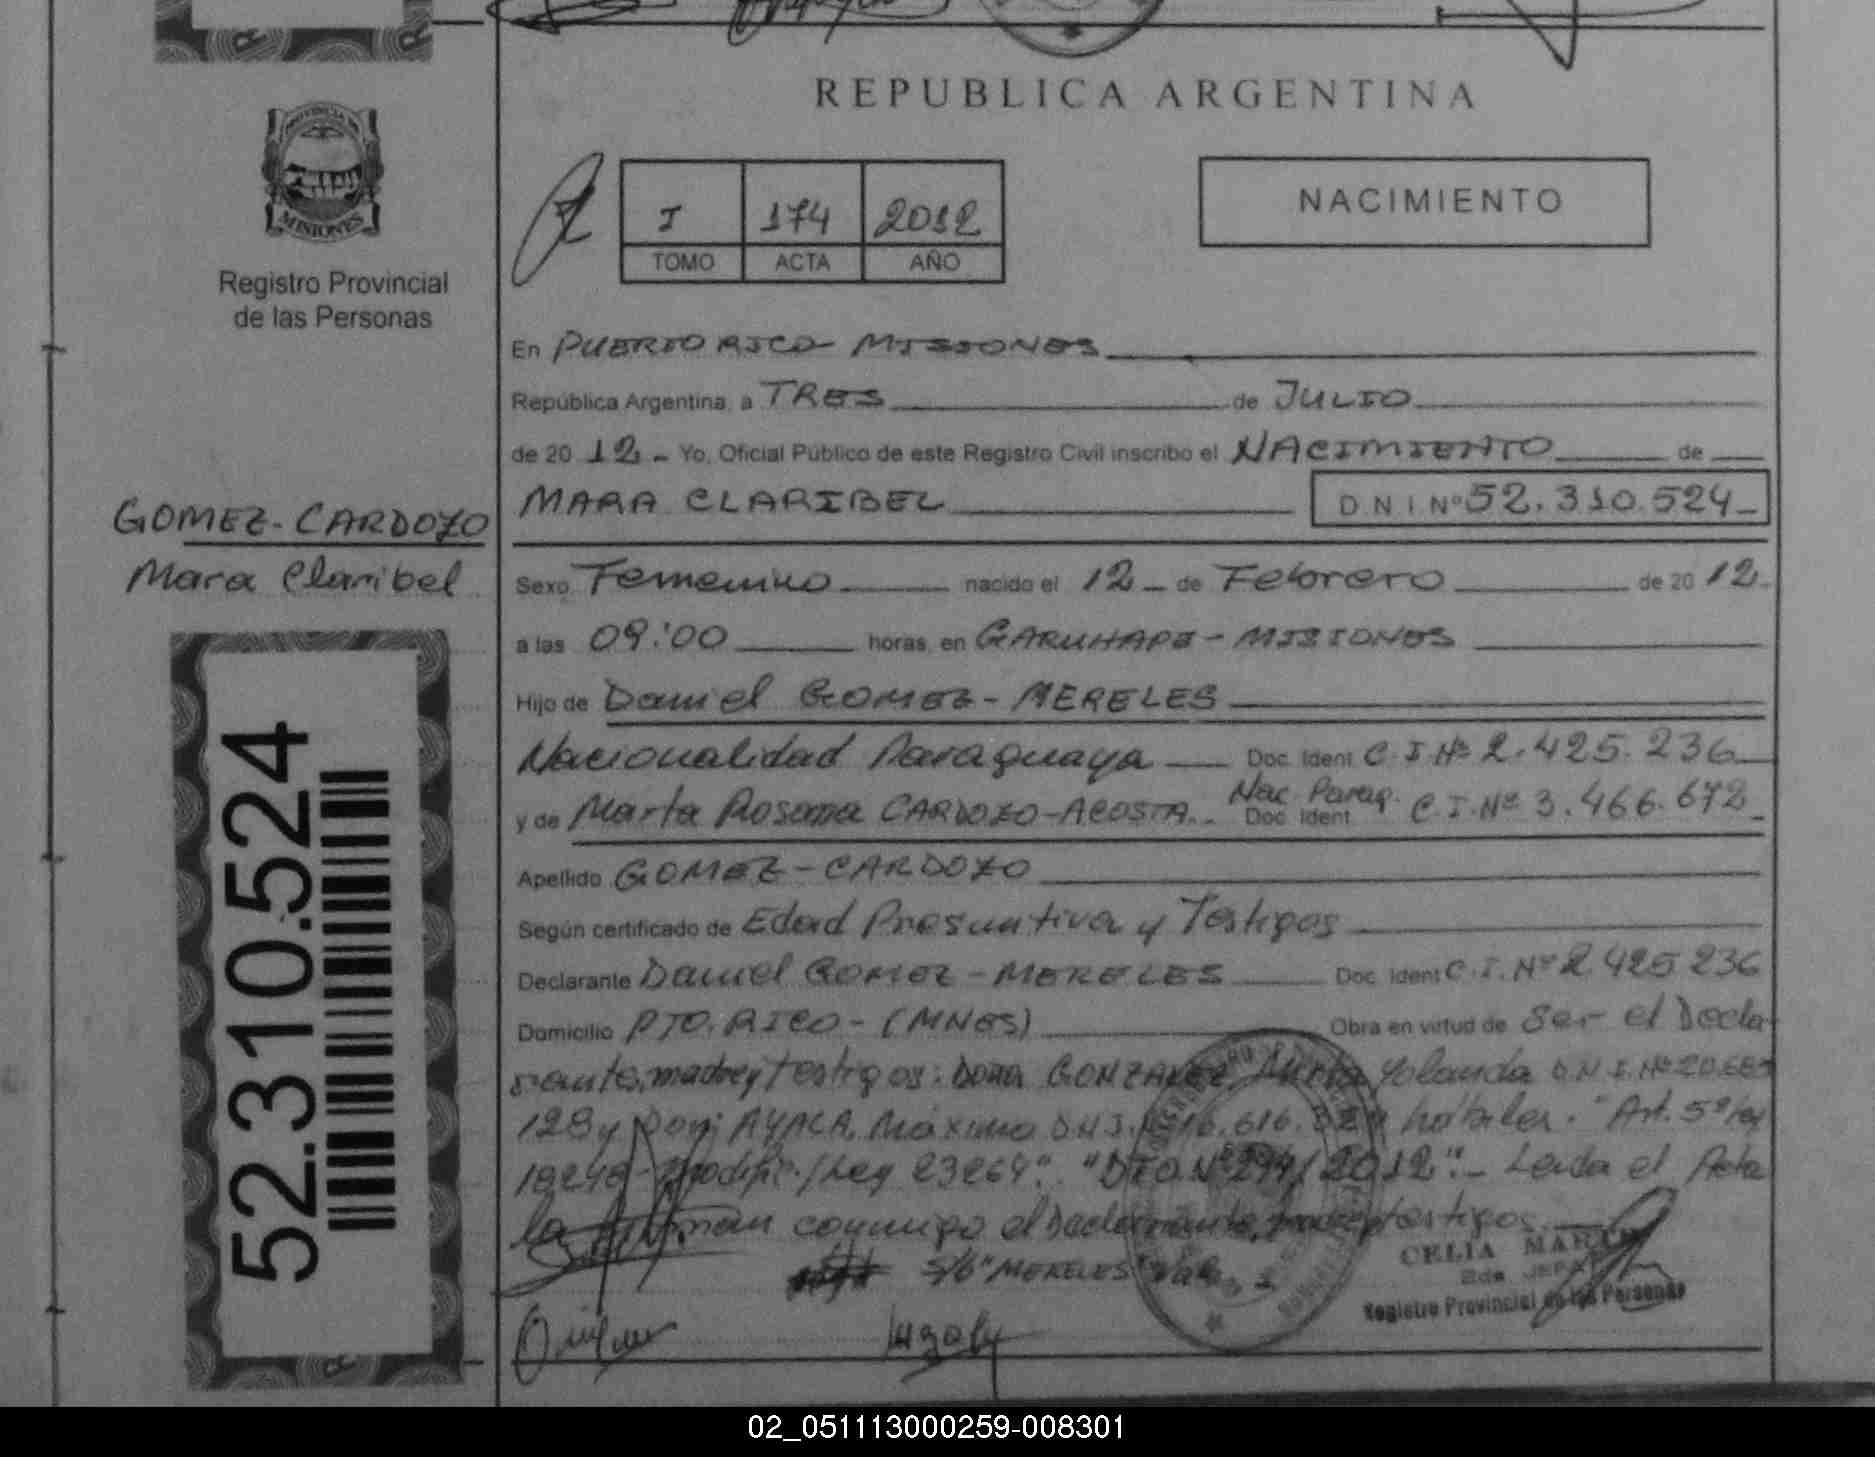 REPUBLICA ARGENTINA
PROVINCIA DE
MISIONES
Registro Provincial
de las Personas
I 174 2012
TOMO ACTA AÑO
NACIMIENTO
En PUERTO RICO - MISIONES
República Argentina, a TRES de JULIO
de 2012 - Yo, Oficial Público de este Registro Civil inscribo el NACIMIENTO de
MARA CLARIBEL D N I Nº 52.310.524
GOMEZ-CARDOZO
Mara Claribel
Sexo Femenino nacido el 12 de Febrero de 2012
a las 09:00 horas, en GARUHAPE - MISIONES
Hijo de Daniel GOMEZ - MERELES
Nacionalidad Paraguaya Doc. Ident C.I.Nº 2.425.236
y de Marta Rosana CARDOZO-ACOSTA Nac. Parag. Doc. Ident C.I.Nº 3.466.672
Apellido GOMEZ-CARDOZO
Según certificado de Edad Presuntiva y Testigos
Declarante Daniel GOMEZ - MERELES Doc. Ident C.I. Nº 2.425.236
Domicilio PTO. RICO - (MNES) Obra en virtud de Ser el Decla
rante, madre y testigos: Doña GONZALEZ, Mirta Yolanda D.N.I.Nº 20.683
128 y Don: AYALA, Máximo D.N.I. 16.616. hábiles. "Art. 5º Ley
18248 - modific./Ley 23264". "DTO Nº 294/2012".- Leida el Acta
la firman conmigo el Declarante, madre y testigos.
S/b "MERELES" Vale
CELIA
Registro Provincial de las Personas
52.310.524
02_051113000259-008301